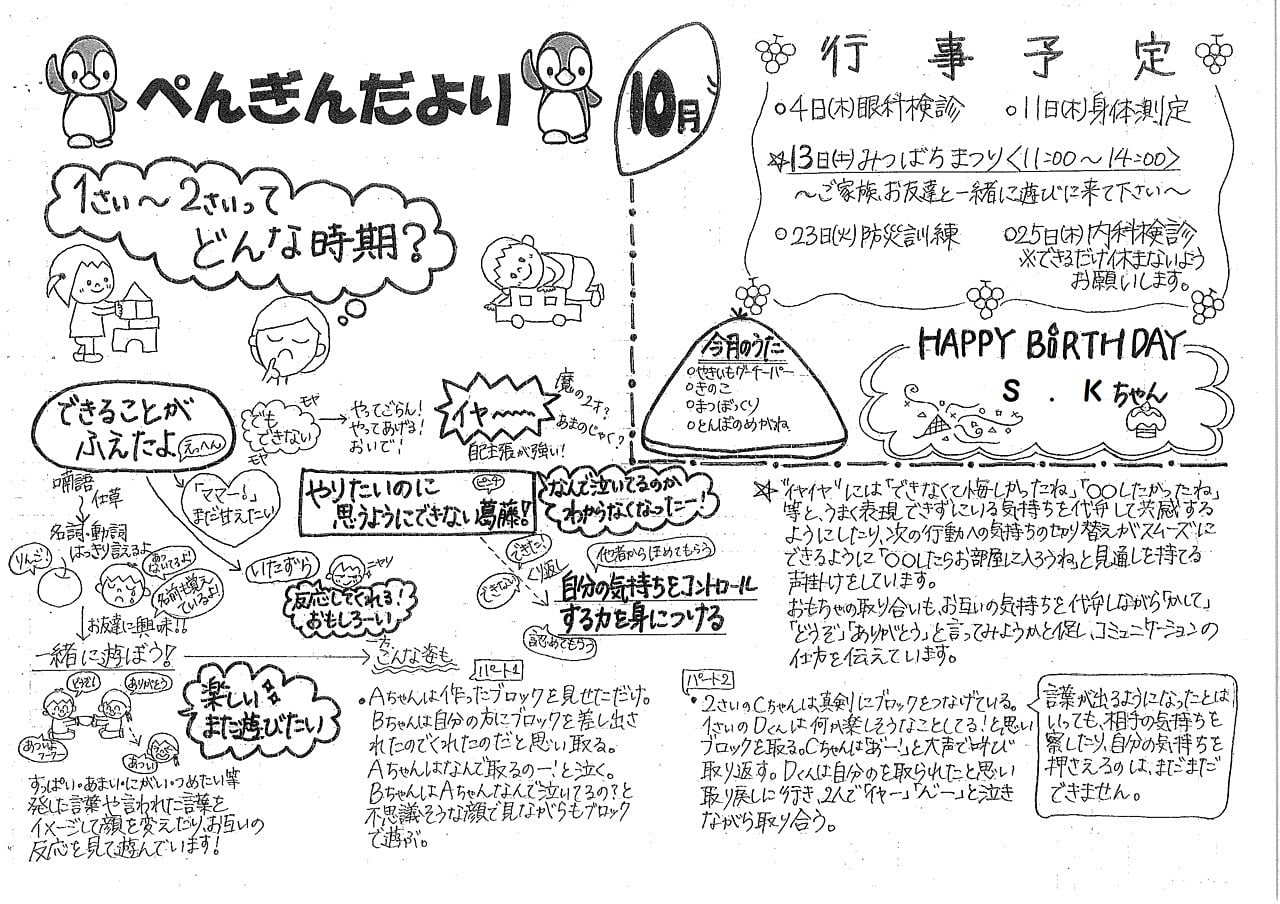 ぺんぎんだより
10月
行事予定
○4日(木)眼科検診 ○11日(木)身体測定
☆13日(土)みつばちまつり〈11:00〜14:00〉
〜ご家族、お友達と一緒に遊びに来て下さい〜
○23日(火)防災訓練 ○25日(木)内科検診
※できるだけ休まないよう
お願いします。
1さい〜2さいって
どんな時期?
今月のうた
○やきいもグーチーパー
○きのこ
○まつぼっくり
○とんぼのめがね
HAPPY BiRTHDAY
S . Kちゃん
できることが
ふえたよ
えっへん
モヤ
でも
できない
モヤ
やってごらん!
やってあげる!
おいで!
イヤ〜〜
自己主張が強い!
魔の2才?
あまのじゃく?
喃語
仕草
名詞・動詞
はっきり言えるよ
りんご!
あっ
ないてるよ!
名前も覚え
ているよ!
お友達に興味!!
一緒に遊ぼう!
「ママー!」
まだ甘えたい!
いたずら
ニヤリ
反応してくれる!
おもしろーい
やりたいのに
思うようにできない葛藤!
なんで泣いてるのか
わからなくなったー!
できた!
くり返し
できない
他者からほめてもらう
自分の気持ちをコントロール
する力を身につける
認めてもらう
どうぞ!
ありがとう
あつい
楽しい
まだ遊びたい
すっぱい・あまい・にがい・つめたい等
発した言葉や言われた言葉を
イメージして顔を変えたり、お互いの
反応を見て遊んでいます!
こんな姿も
パート1
・Aちゃんは作ったブロックを見せただけ。
Bちゃんは自分の方にブロックを差し出さ
れたのでくれたのだと思い取る。
Aちゃんはなんで取るのー!と泣く。
BちゃんはAちゃんなんで泣いてるの?と
不思議そうな顔で見ながらもブロック
で遊ぶ。
☆"イヤイヤ"には「できなくて悔しかったね」「○○したかったね」
等と、うまく表現できずにいる気持ちを代弁して共感する
ようにしたり、次の行動への気持ちの切り替えがスムーズに
できるように「○○したらお部屋に入ろうね」と見通しを持てる
声掛けをしています。
おもちゃの取り合いも、お互いの気持ちを代弁しながら「かして」
「どうぞ」「ありがとう」と言ってみようかと促し、コミュニケーションの
仕方を伝えています。
パート2
・2さいのCちゃんは真剣にブロックをつなげている。
1さいのDくんは何か楽しそうなことしてる!と思い
ブロックを取る。Cちゃんは「あー!」と大声で叫び
取り返す。Dくんは自分のを取られたと思い
取り戻しに行き、2人で「イヤー」「んー」と泣き
ながら取り合う。
言葉が出るようになったとは
いっても、相手の気持ちを
察したり、自分の気持ちを
押さえるのは、まだまだ
できません。